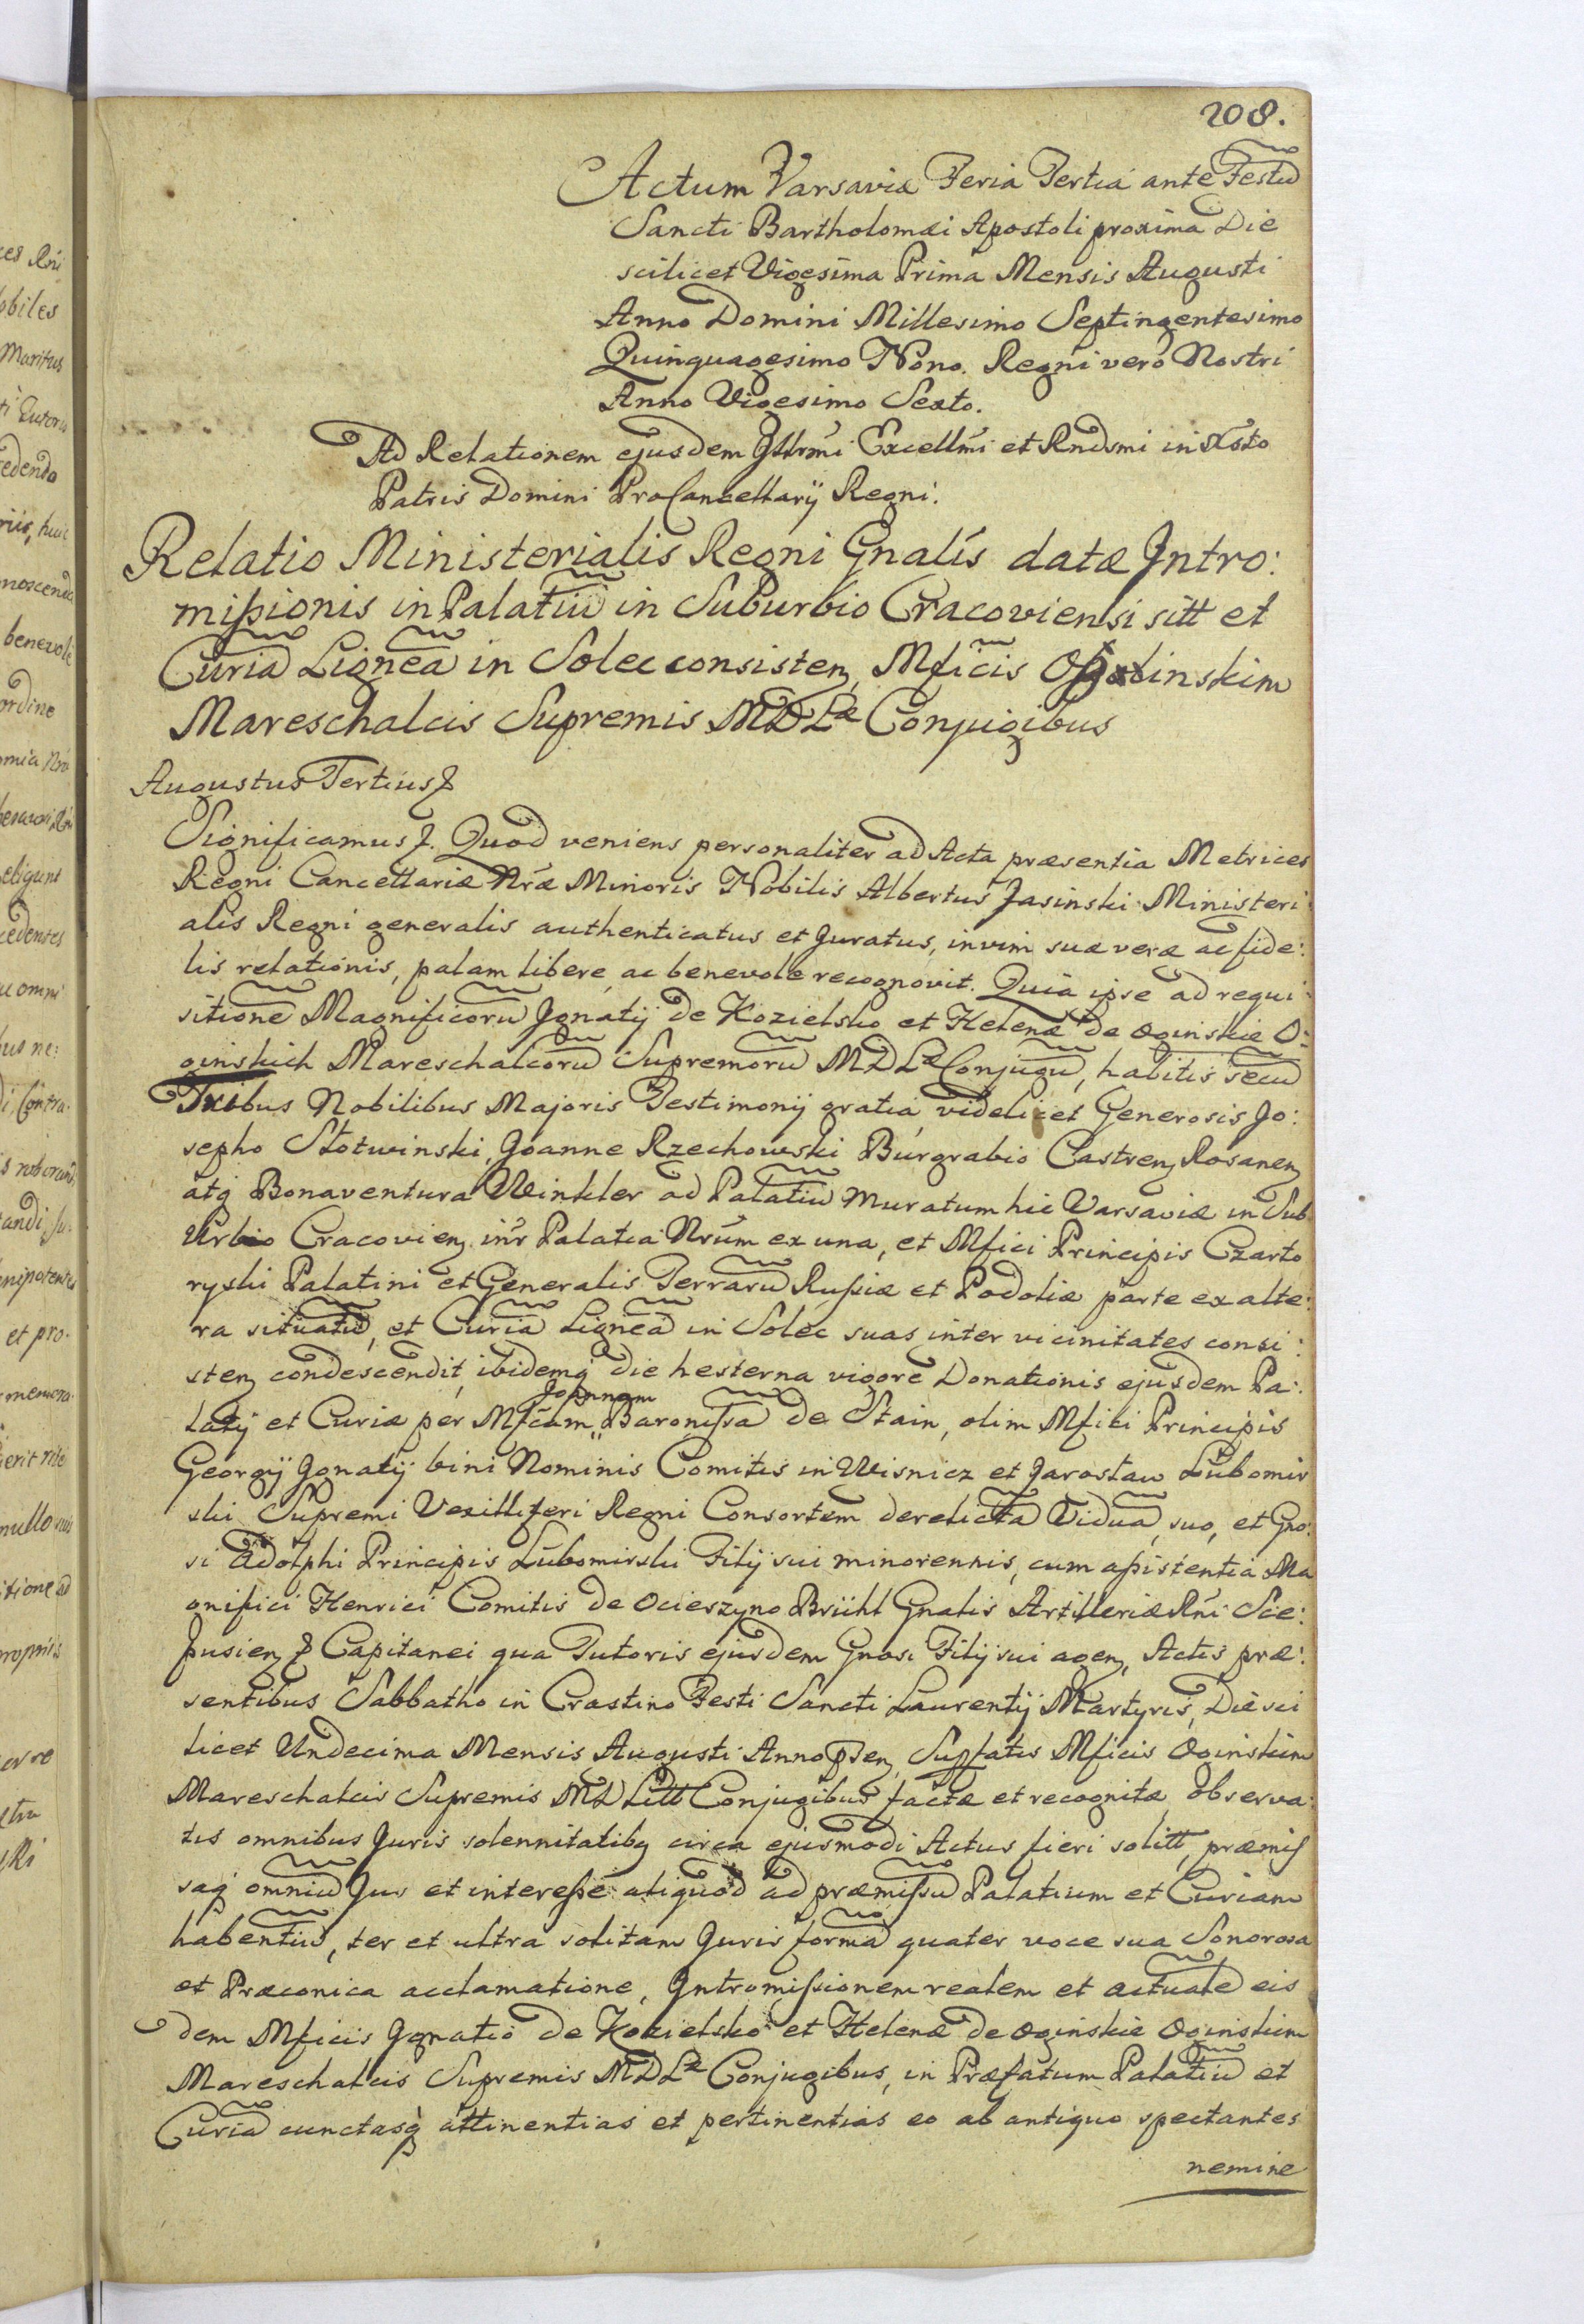 208.
Actum Varsaviæ Feria Tertia ante Festũ
Sancti Bartholomæi Apostoli proxima Die
scilicet Vigesima Prima Mensis Augusti
Anno Domini Millesimo Septingentesimo
Quinquagesimo Nono. Regni vero Nostri
Anno Vigesimo Sexto.
Ad Relationem ejusdem Illrmi Excellmi et Rndsmi in Xsto
Patris Domini ProCancellarij Regni.
Relatio Ministerialis Regni Gnalis datæ Intro:
mißionis in Palatiũ in SuPurbio Cracoviensi sitt et
Curiã Ligneã in Solec consisten, Mficis Oginskim
Mareschalcis Supremis MDLæ Conjugibus
Augustus Tertius &
Significamus &. Quod veniens personaliter ad Acta præsentia Metrices
Regni Cancellariæ Nræ Minoris Nobilis Albertus Jasinski Ministeri
alis Regni generalis authenticatus et Juratus, in vim suæ veræ ac fide:
lis relationis, palam libere ac benevole recognovit. Quia ipse ad requi
sitionẽ Magnificorũ Ignatij de Kozielsko et Helenæ de Oginskie O:
ginskich Mareschalcorũ Supremorũ MDLæ Conjugũ, habitis secũ
Tribus Nobilibus Majoris Testimonij gratia, videlicet Generosis Jo:
sepho Słotwinski, Joanne Rzechowski Burgrabio Castren Rosanen
atq Bonaventura Winkler ad Palatiũ muratum hic Varsaviæ in Sub
Urbio Cracovien. inr Palatia Nrum ex una, et Mfici Principis Czarto
ryski Palatini et Generalis Terrarũ Rußiæ et Podoliæ parte ex alte:
ra situatũ, et Curiã Ligneã in Solec suas inter vicinitates consi:
sten condescendit, ibidemq die hesterna vigore Donationis ejusdem Pa:
Joannam
latij et Curiæ per Mficam „ Baronißã de Stain, olim Mfici Principis
Georgij Ignatij bini Nominis Comitis in Wisnicz et Jarosław Lubomir
ski Supremi Vexilliferi Regni Consortem derelictã Viduã, suo, et Gno:
si Adolphi Principis Lubomirski Filij sui minorennis, cum aßistentia Ma
gnifici Henrici Comitis de Ocieszyno Brühl Gnalis Artilleriæ Rni Sce:
pusien & Capitanei qua Tutoris ejusdem Gnosi Filij sui agen, Actis præ:
sentibus Sabbatho in Crastino Festi Sancti Laurentij Martyris, Die sci
licet Undecima Mensis Augusti Anno psen, Supfatis Mficis Oginskim
Mareschalcis Supremis MD Litt Conjugibus factæ et recognitæ, observa:
tis omnibus Juris solennitatibq circa ejusmodi Actus fieri solitt, præmiß
saq omniũ Jus et intereße aliquod ad præmißũ Palatium et Curiam
habentiũ, ter et ultra solitam Juris formã quater voce sua Sonorosa
et Præconica acclamatione, Intromißionem realem et actualẽ eis
dem Mficis Ignatio de Kozielsko et Helenæ de Oginskie Oginskim
Mareschalcis Supremis MDLæ Conjugibus, in Præfatum Palatiũ et
Curiã cunctasq attinentias et pertinentias eo ab antiquo spectantes
nemine